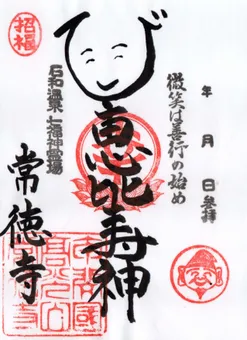 年　月　日参拝
微笑は善行の始め
恵比寿神
石和温泉七福神霊場
招福
常徳寺